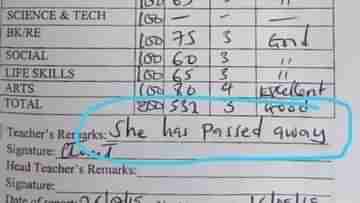 SCIENCE & TECH 100 — — —
BK/RE 100 75 3 Good
SOCIAL 100 60 3 "
LIFE SKILLS 100 65 3 "
ARTS 100 80 4 Excellent
TOTAL 532 3 Good
Teacher's Remarks: She has Passed away
Signature:
Head Teacher's Remarks:
Signature: